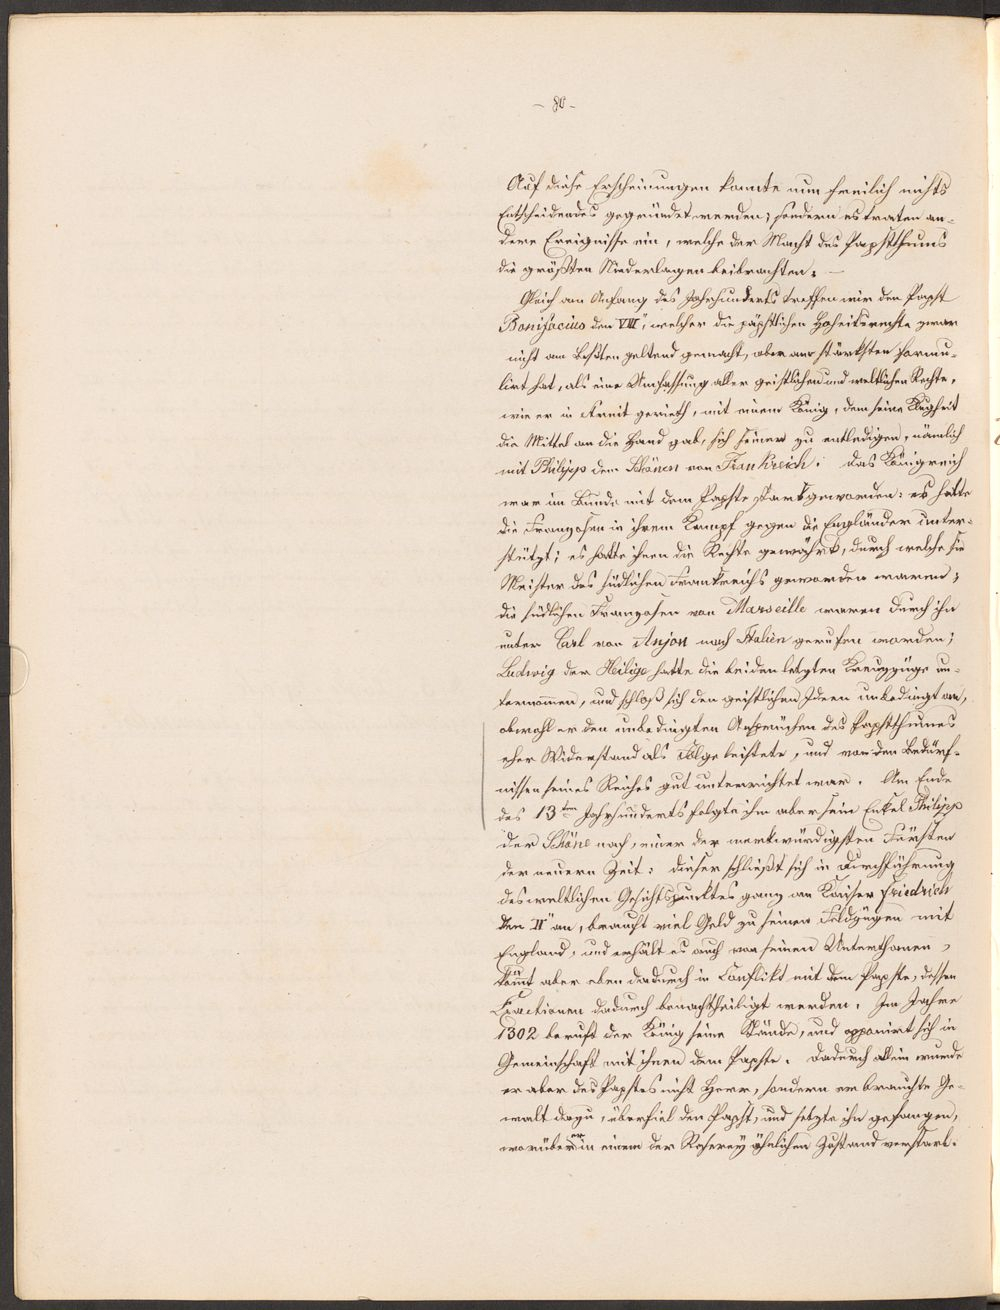 - 80 -
Auf diese Erscheinungen konnte nun freilich nichts
Entscheidendes gegründet werden; sondern es traten an-
dere Ereignisse ein, welche der Macht des Papstthums
die größten Niederlagen beibrachten. —
Gleich am Anfang des Jahrhunderts treffen wir den Papst
Bonifacius den VIII", welcher die päpstlichen Hoheitsrechte zwar
nicht am Besten geltend gemacht, aber am stärksten formu-
lirt hat, als eine Umfassung aller geistlichen und weltlichen Rechte,
wie er in Streit gerieth, mit einem König, dem seine Klugheit
die Mittel an die Hand gab, sich seiner zu entledigen, nämlich
mit Philipp dem Schönen von Frankreich. Das Königreich
war im Bunde mit dem Papste stark geworden: es hatte
die Franzosen in ihrem Kampf gegen die Engländer unter-
stützt; es hatte ihnen die Rechte gewährt, durch welche sie
Meister des südlichen Frankreichs geworden waren;
die südlichen Franzosen von Marseille waren durch ihn
unter Carl von Anjou nach Italien gerufen worden;
Ludwig der Heilige hatte die beiden letzten Kreuzzüge un-
ternommen, und schloß sich den geistlichen Ideen unbedingt an,
obwohl er den unbedingten Ansprüchen des Papstthumes
eher Widerstand als Folge leistete, und von den Bedürf-
nissen seines Reiches gut unterrichtet war. Am Ende
des 13ten Jahrhunderts folgte ihm aber sein Enkel Philipp
der Schöne nach, einer der merkwürdigsten Fürsten
der neuern Zeit: dieser schließt sich in Durchführung
des weltlichen Gesichtspunktes ganz an Kaiser Friedrich
den II" an, braucht viel Geld zu seinen Feldzügen mit
England, und erhält es auch von seinen Unterthanen,
kömt aber eben dadurch in Conflikt mit dem Papste, dessen
Exactionen dadurch benachtheiligt werden. Im Jahre
1302 beruft der König seine Stände, und opponirt sich in
Gemeinschaft mit ihnen dem Papste. Dadurch allein wurde
er aber des Papstes nicht Herr, sondern er brauchte Ge-
walt dazu, überfiel den Papst, und setzte ihn gefangen,
worüber er in einem der Raserey ähnlichen Zustand verstarb.